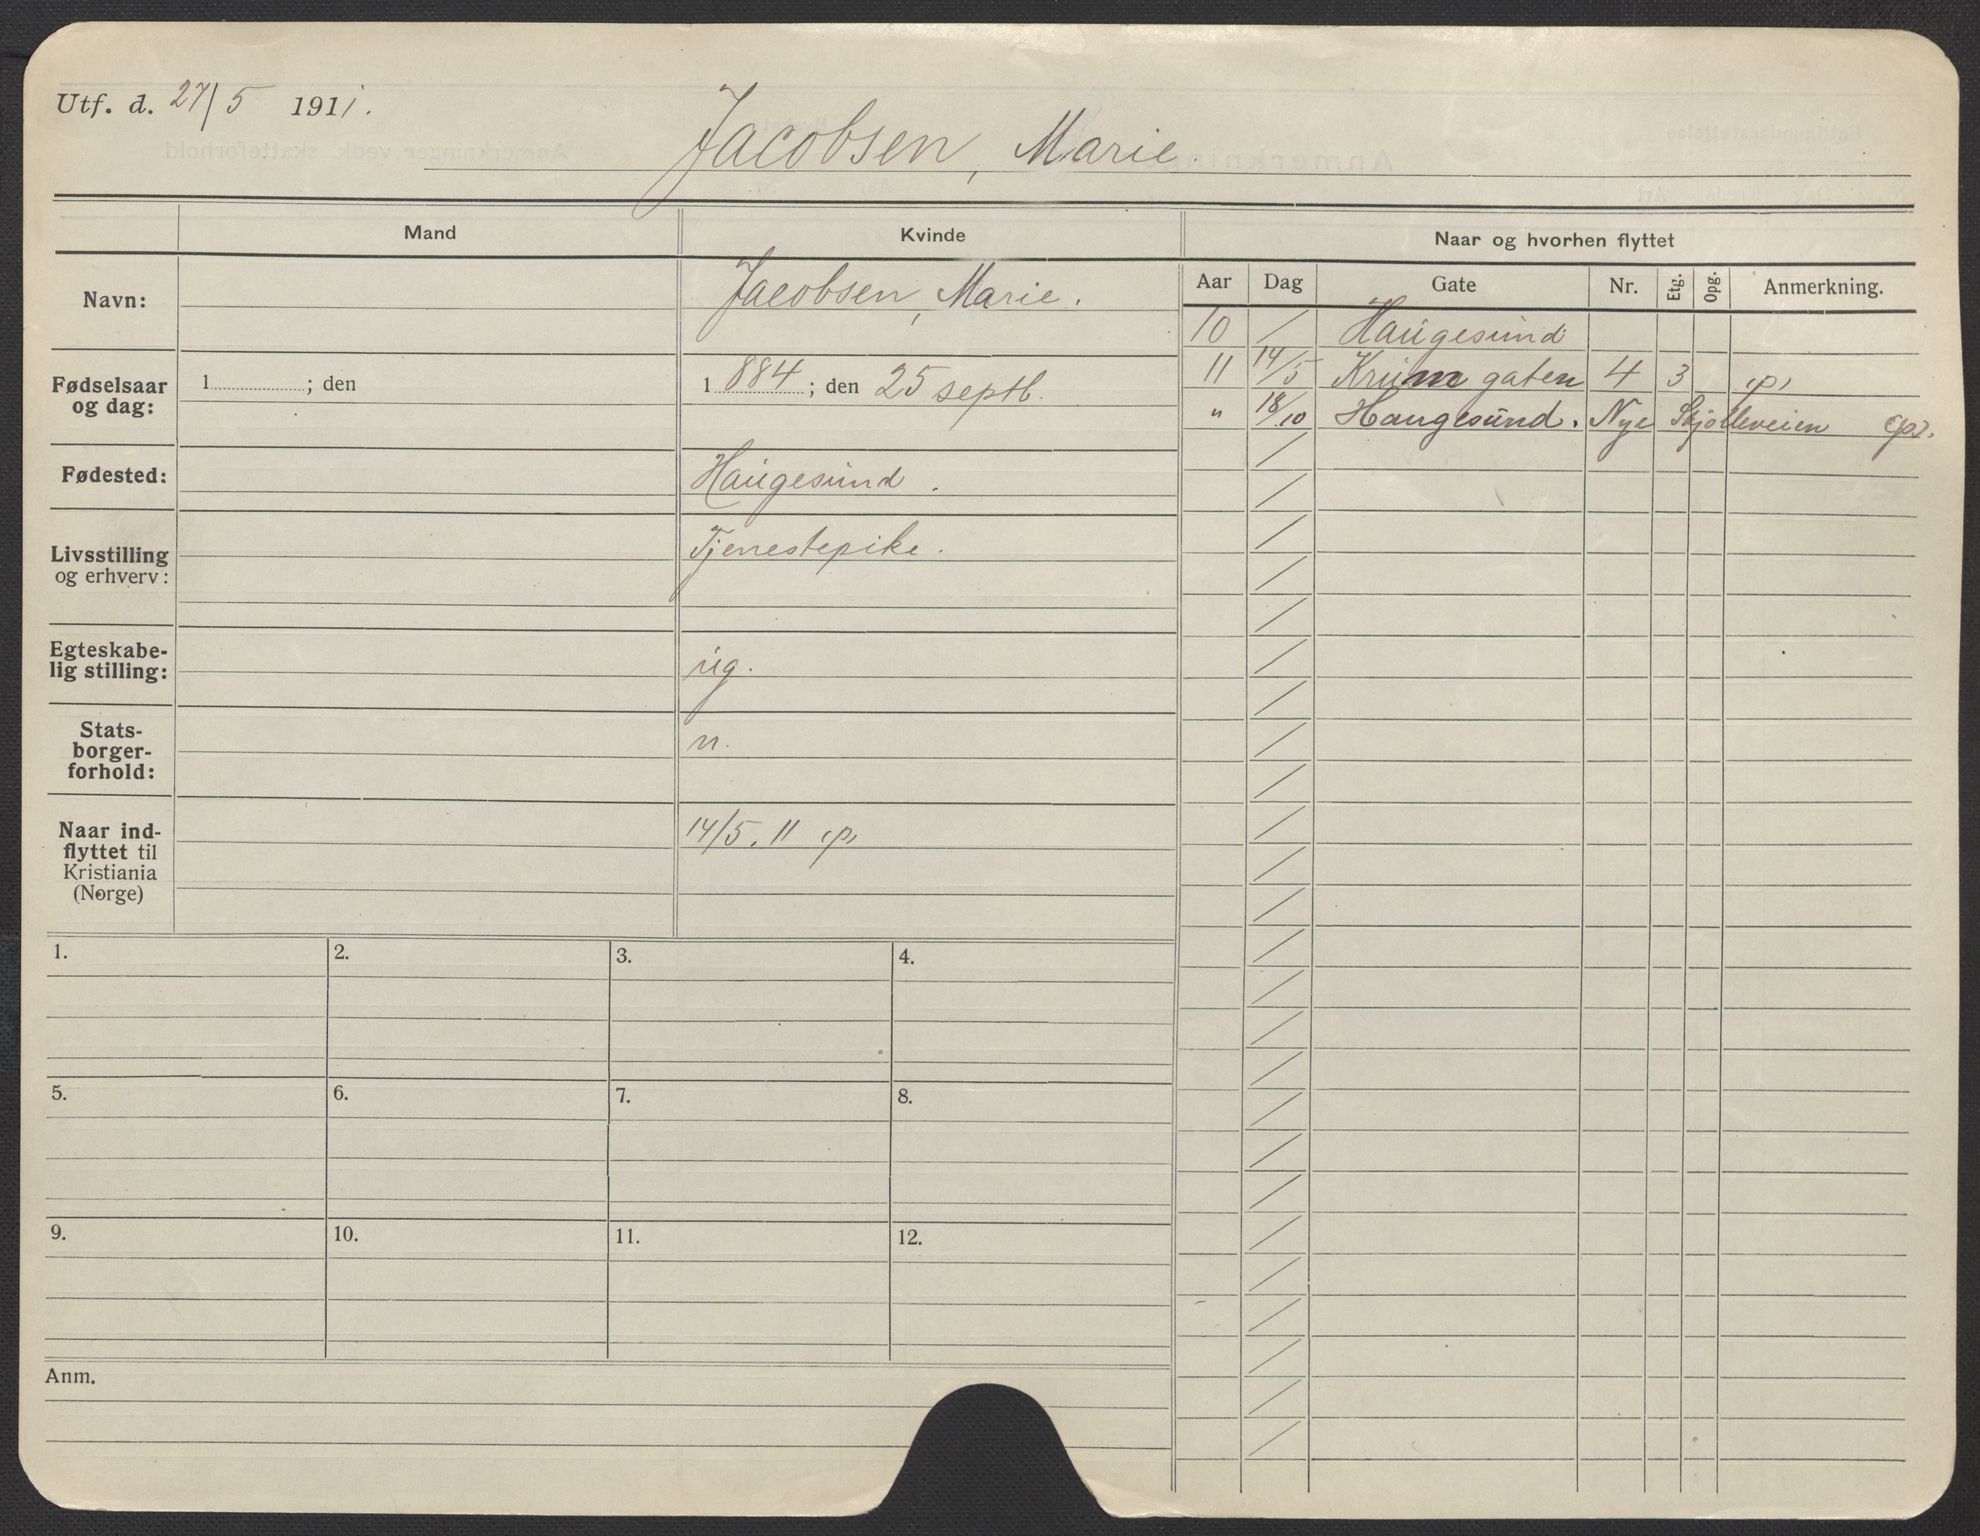 Utf. d. 27/5 1911.
Jacobsen, Marie.
Mand
Kvinde
Naar og hvorhen flyttet
Aar Dag Gate Nr. Etg. Opg. Anmerkning.
Navn:
Jacobsen, Marie.
10 Haugesund
Fødselsaar
og dag:
1 ; den
1 884 ; den 25 septb.
11 14/5 Krumgaten 4 3 (p)
" 18/10 Haugesund. Nye (p).
Fødested:
Haugesund.
Livsstilling
og erhverv:
Tjenestepike.
Egteskabe-
lig stilling:
ug.
Stats-
borger-
forhold:
n.
Naar ind-
flyttet til
Kristiania
(Norge)
14/5. 11 (p)
1. 2. 3. 4.
5. 6. 7. 8.
9. 10. 11. 12.
Anm.